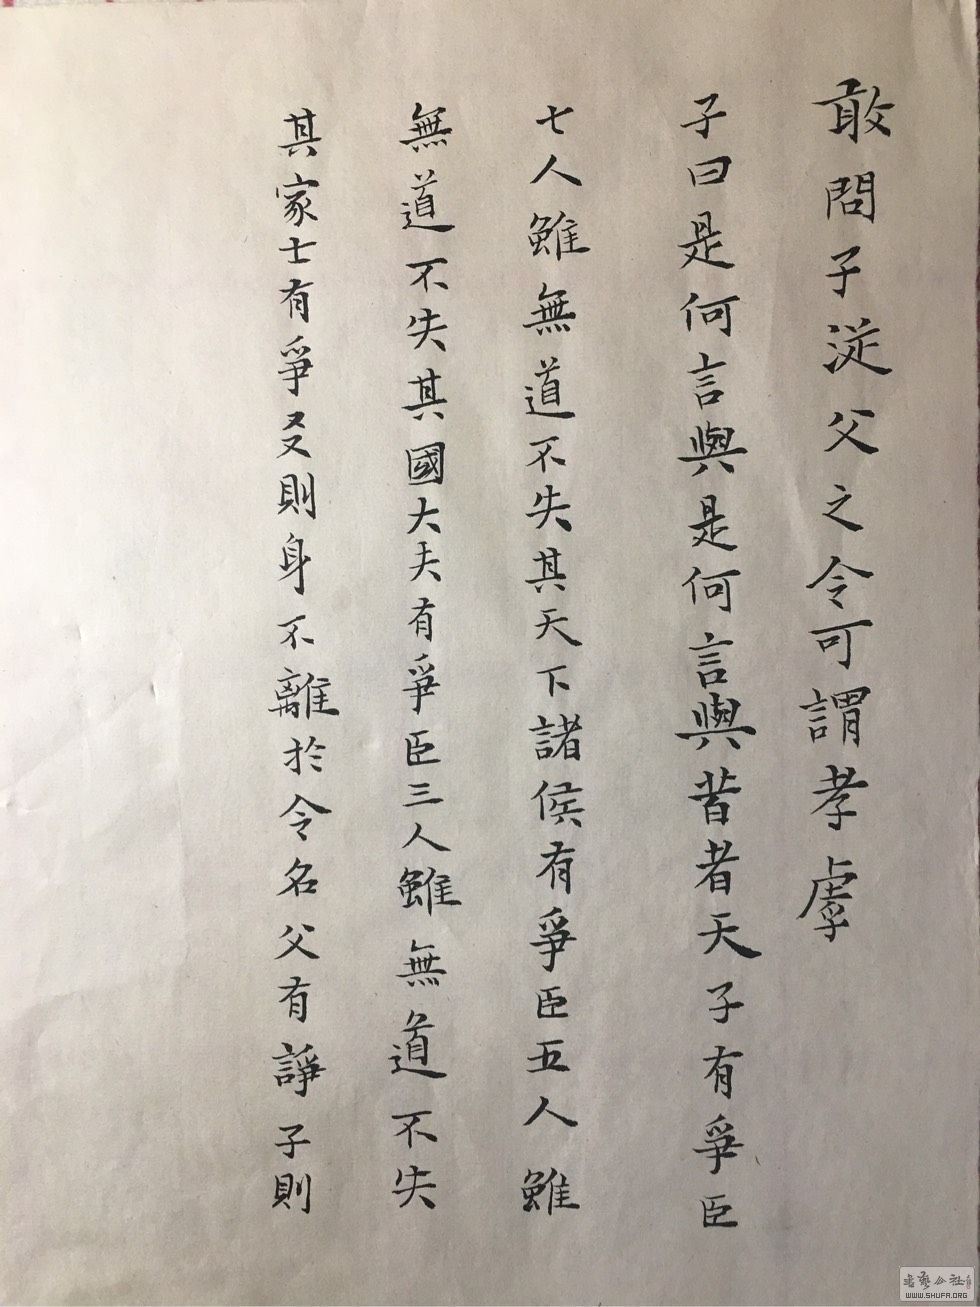 敢問子従父之令可謂孝虖
子曰是何言與是何言與昔者天子有爭臣
七人雖無道不失其天下諸侯有爭臣五人雖
無道不失其國大夫有爭臣三人雖無道不失
其家士有爭友則身不離於令名父有諍子則
WWW.SHUFA.ORG